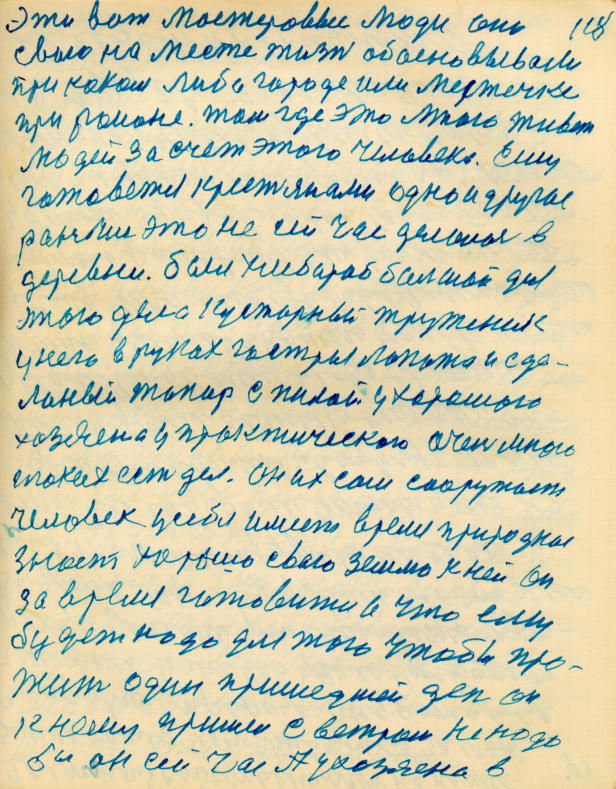 Эти вот мастеровые люди они 118
свою на месте жизн обосновывали
при каком либо городе или местечке
при районе. там где это много живет
людей за счет этого человека. Ему
готовется крестянами одно и другое
раньше это не сей час делалос в
деревни. был хлебараб балшой для
этого дела Кустарный труженик
у него в руках гострая лопата и сде-
ланый топар с пилой у харошого
хозяена у практического очен много
таких ест дел. он их сам сооружает
человек у себя имеет время природное
знает хорошо сваю землю к ней он
за время готовится что ему
будет надо для того чтобы про-
жит один пришедшей ден он
к нему пришел с ветром не надо
бы он сей час А у хозяена в